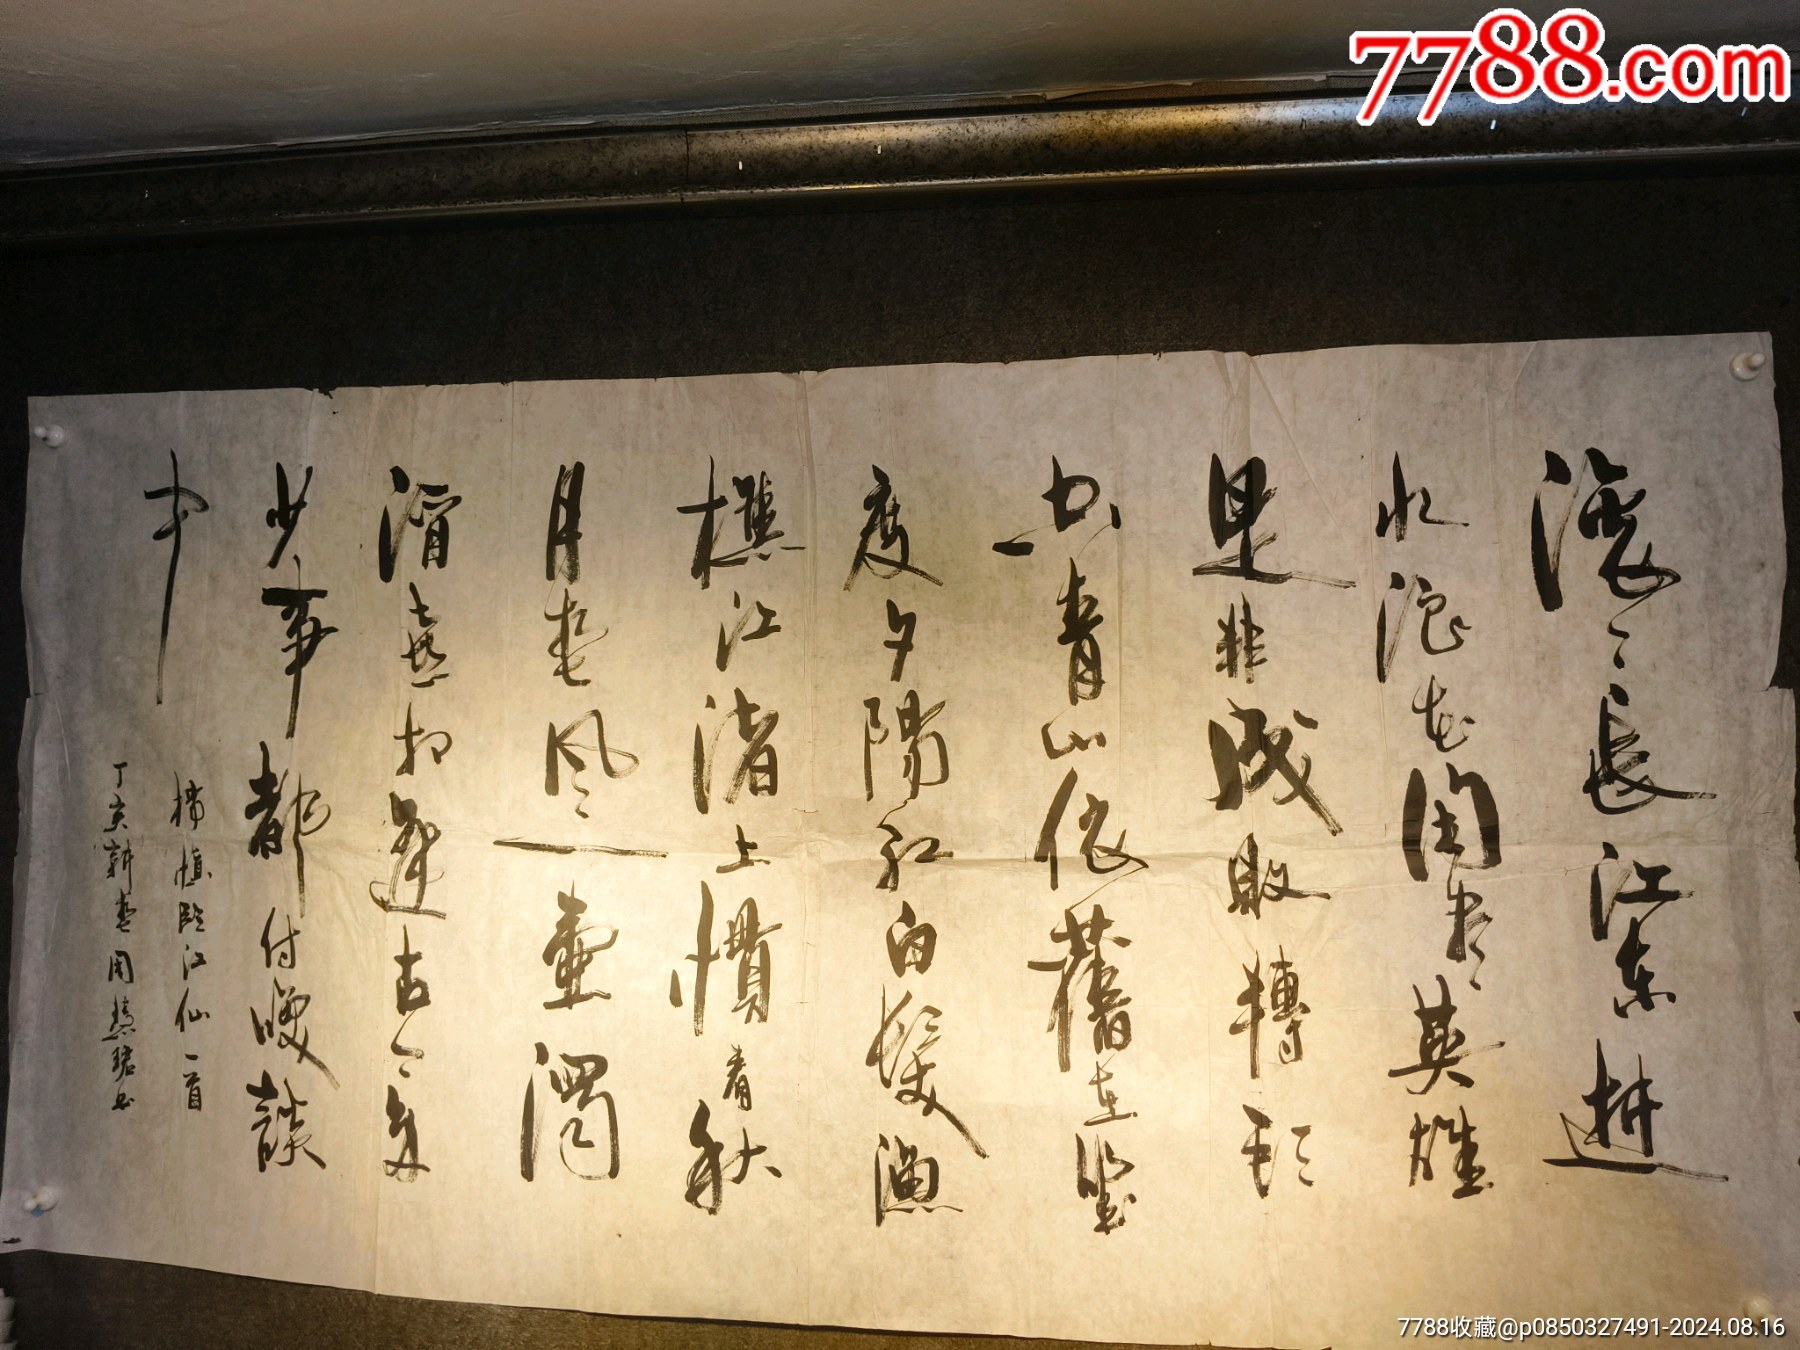 滚滚長江东逝
水浪花淘尽英雄
是非成敗轉头
空青山依舊在幾
度夕陽红白髮漁
樵江渚上慣看秋
月春风一壷濁
酒喜相逢古今多
少事都付咲談
中
楊慎臨江仙一首
丁亥耕春周慧珺书
7788.com
7788收藏@p0850327491-2024.08.16